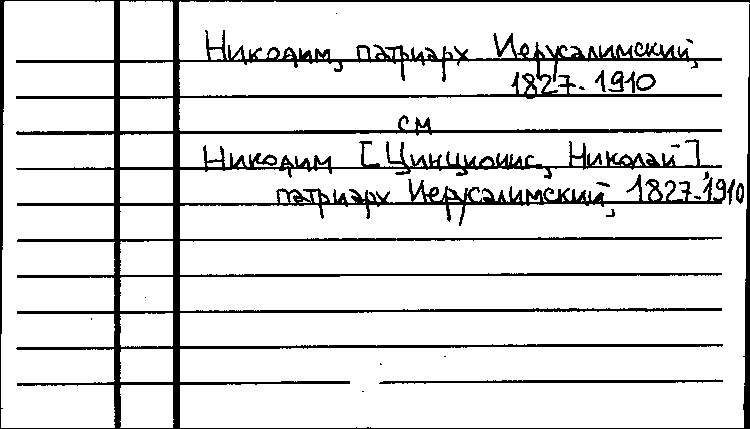 Никодим, патриарх Иерусалимский,
1827-1910
см
Никодим [Цинционис, Николай],
патриарх Иерусалимский, 1827-1910